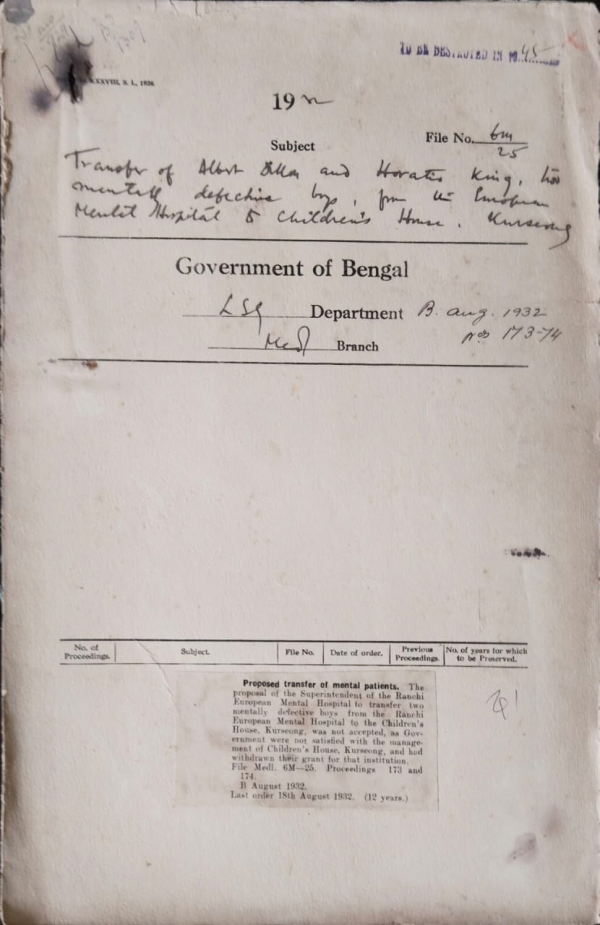 TO BE DESTROYED IN 1945
XXXVIII, S. L., 1926
19
File No. 6M/25
Subject
Transfer of Albert Dillon and Horatio King, two
mentally defective boys, from the European
Mental Hospital to Children's House, Kurseong
Government of Bengal
LSG Department B. Aug. 1932
Medl Branch Nos 173-74
No. of Proceedings. Subject. File No. Date of order. Previous Proceedings. No. of years for which to be Preserved.
Proposed transfer of mental patients. The
proposal of the Superintendent of the Ranchi
European Mental Hospital to transfer two
mentally defective boys from the Ranchi
European Mental Hospital to the Children's
House, Kurseong, was not accepted, as Gov-
ernment were not satisfied with the manage-
ment of Children's House, Kurseong, and had
withdrawn their grant for that institution.
File Medl. 6M—25. Proceedings 173 and
174.
B August 1932.
Last order 18th August 1932. (12 years.)